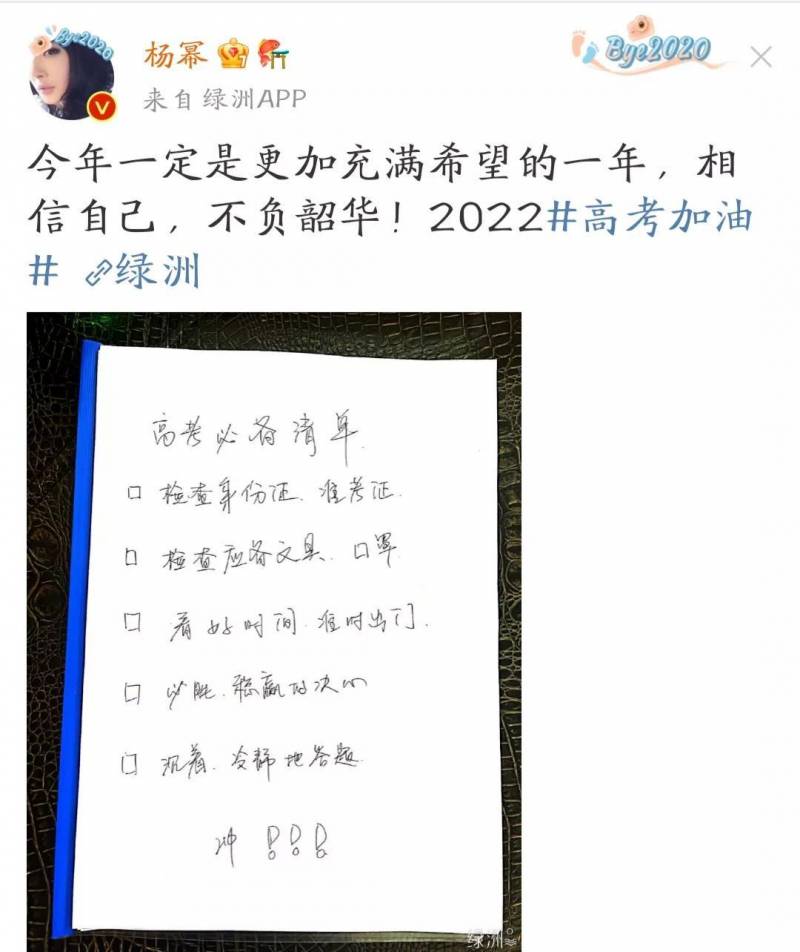 Bye2020
杨幂
Bye2020
来自 绿洲APP
今年一定是更加充满希望的一年，相
信自己，不负韶华！2022#高考加油
# 绿洲
高考必备清单
□ 检查身份证、准考证.
□ 检查应备文具、口罩
□ 看好时间.准时出门.
□ 必胜、稳赢的决心
□ 沉着、冷静地答题
冲！！！
绿洲